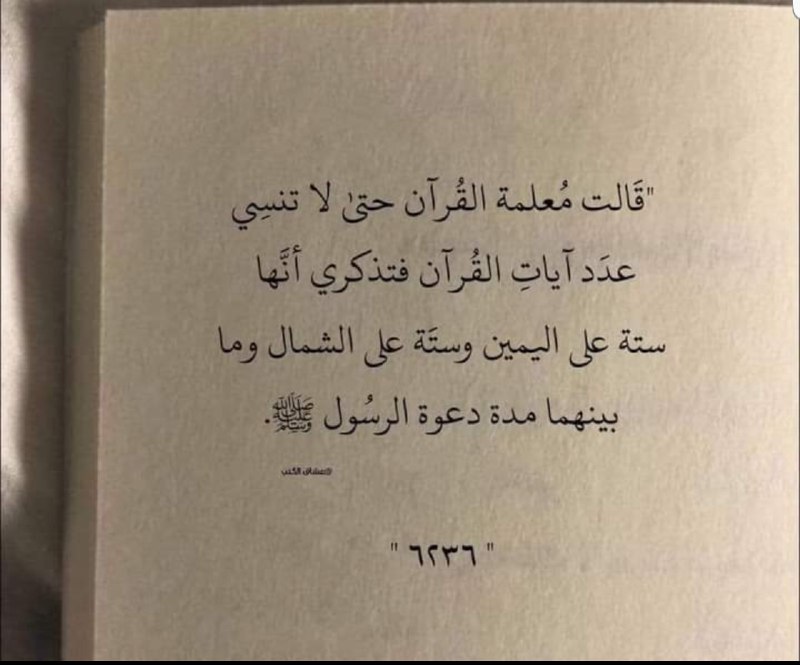 "قَالت مُعلمة القُرآن حتىٰ لا تنسِي
عدَد آياتِ القُرآن فتذكري أنَّها
ستة على اليمين وستَة على الشمال وما
بينهما مدة دعوة الرسُول ﷺ.
#عشاق الكتب
" ٦٢٣٦ "